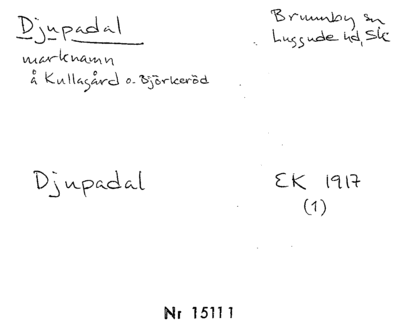 Djupadal
Brunnby sn
Luggude hd, Sk
marknamn
å Kullagård o. Björkeröd
Djupadal
EK 1917
(1)
Nr 15111